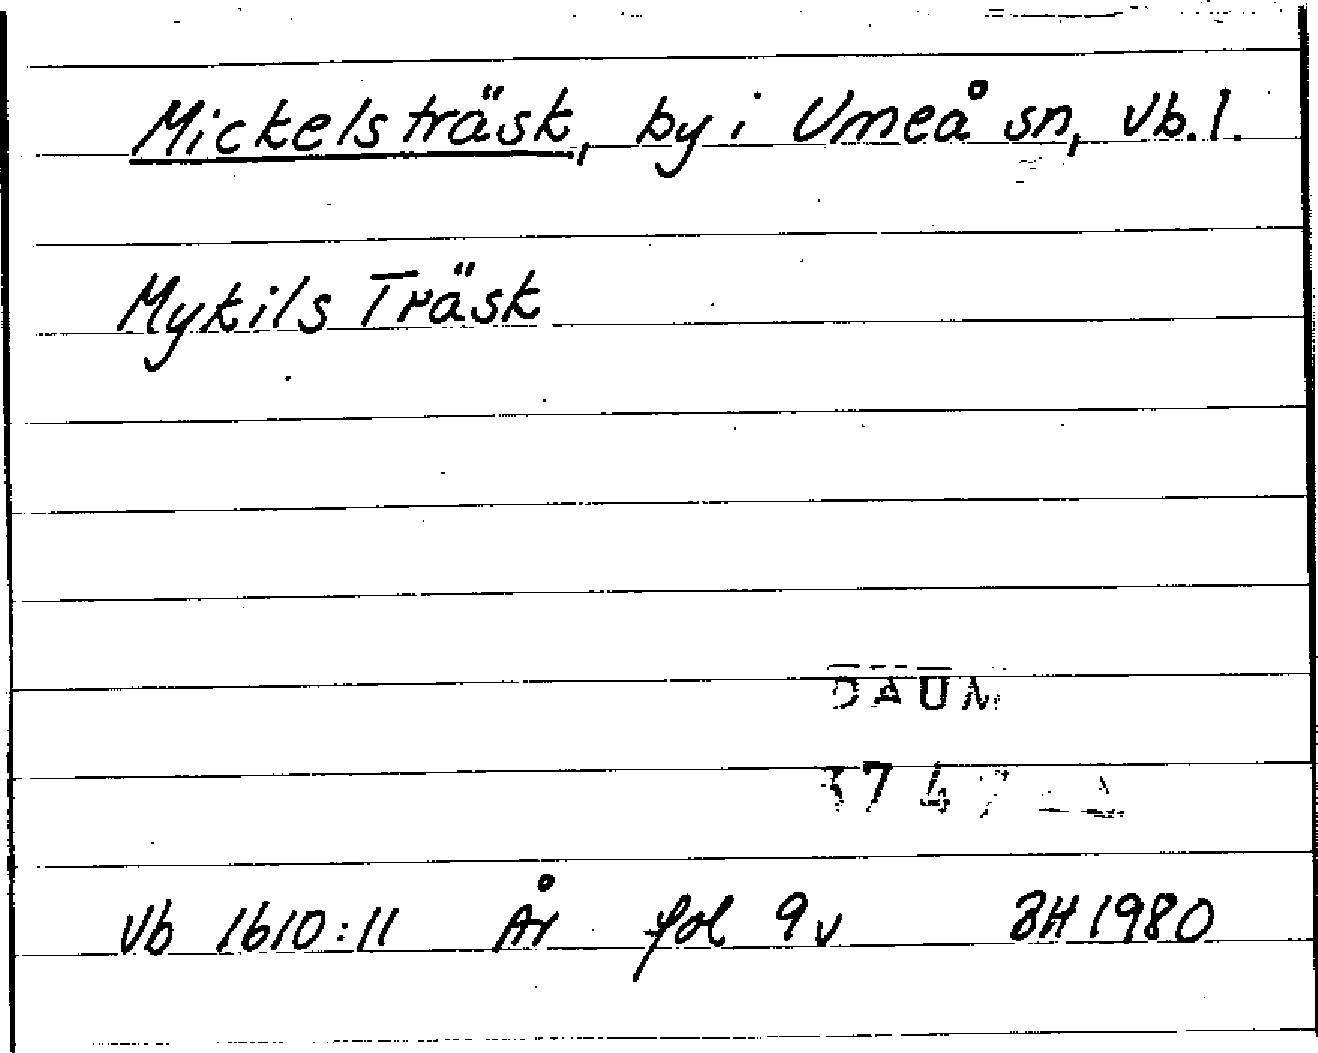 Mickelsträsk, by i Umeå sn, Vb. l.
Mykils Träsk
DAUM
Vb 1610:11 År fol 9v BH 1980